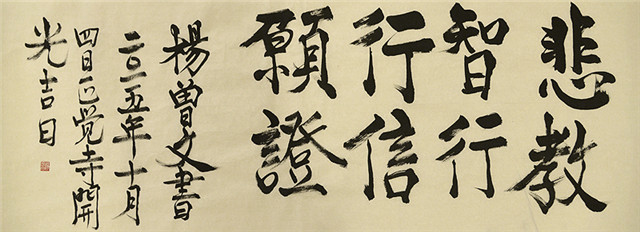 悲教
智行
行信
願證
楊曾文書
二〇一五年十月
四日正覚寺開
光吉日